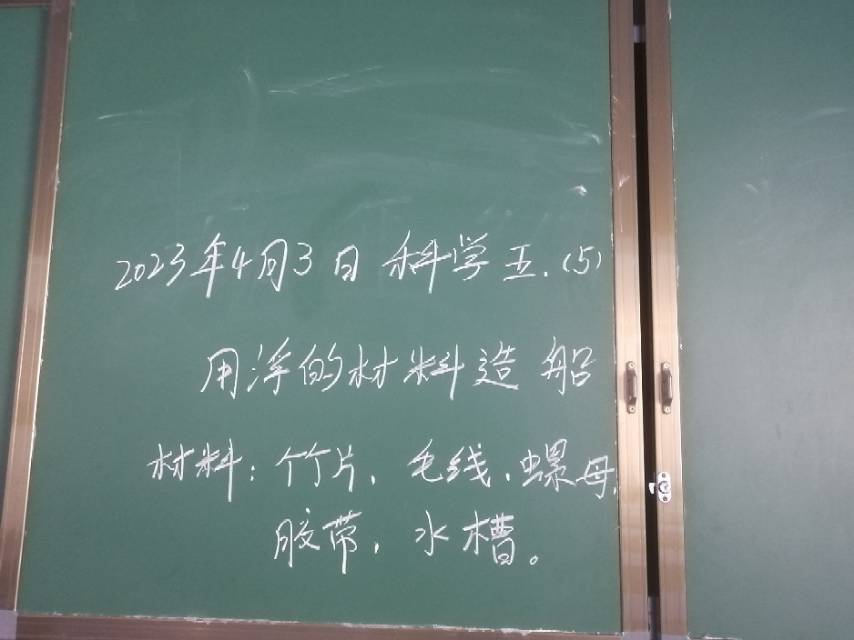 2023年4月3日 科学 五.(5)
用浮的材料造船
材料:竹片、毛线、螺母、
胶带、水槽。